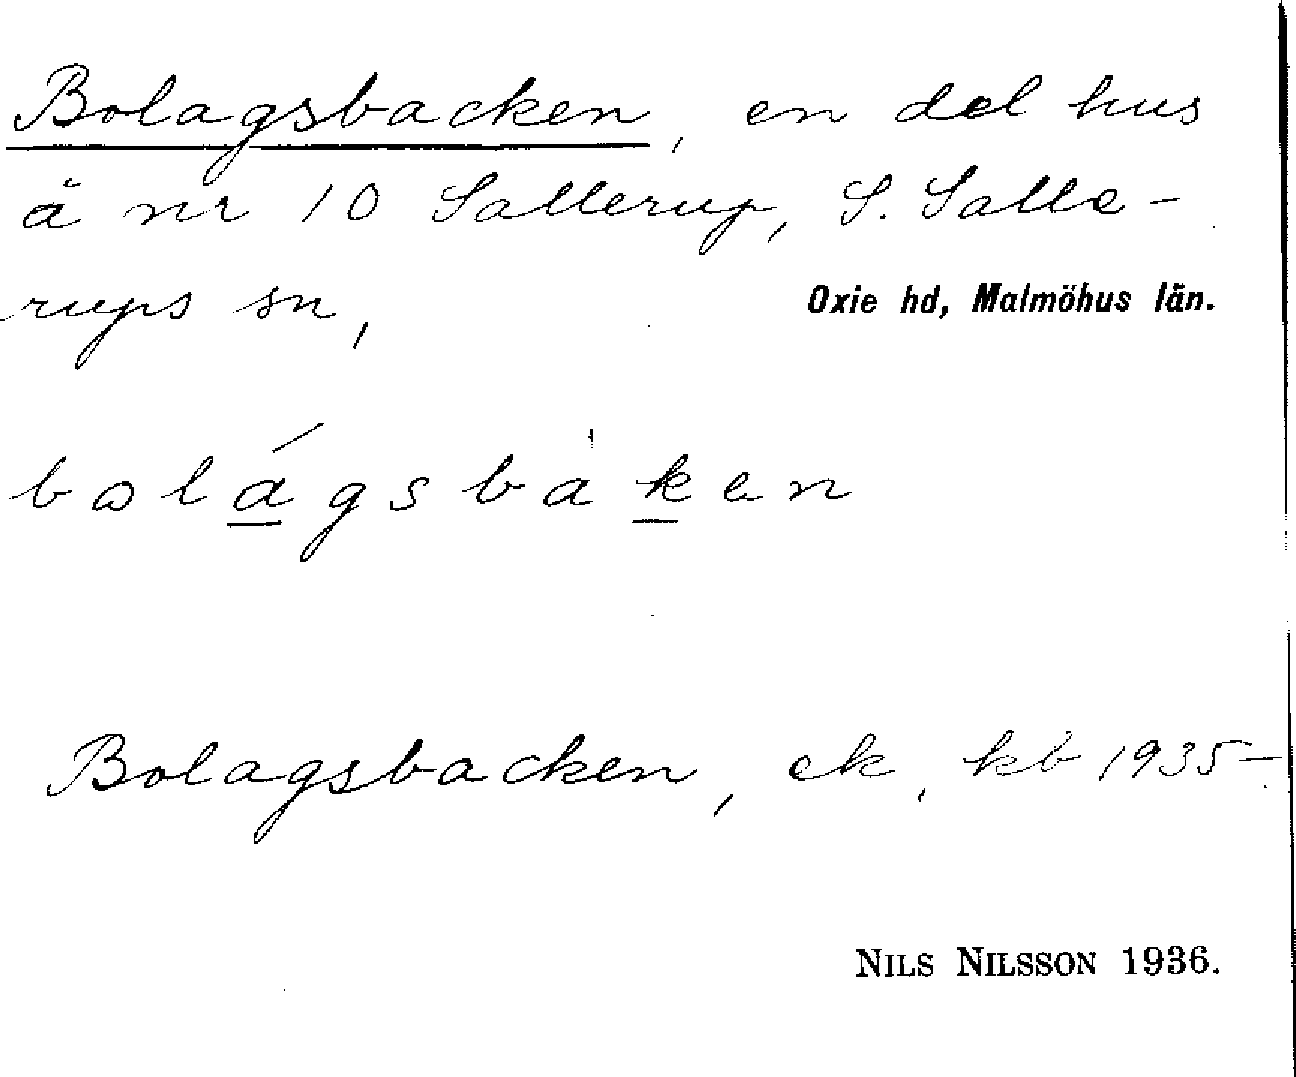 Bolagsbacken, en del hus
å nr 10 Sallerup, S. Salle-
rups sn,
Oxie hd, Malmöhus län.
bolágsbàken
Bolagsbacken, ek, kb 1935–
NILS NILSSON 1936.